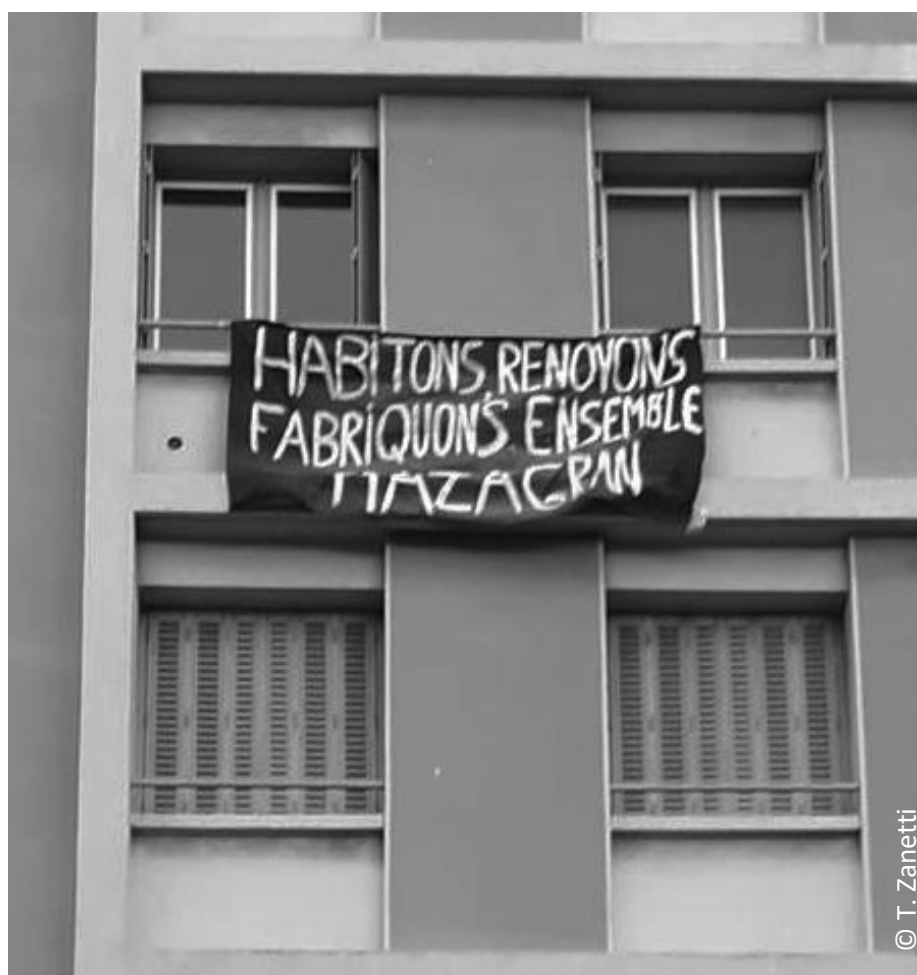 HABITONS, RENOVONS
FABRIQUONS ENSEMBLE
MAZAGRAN
© T. Zanetti